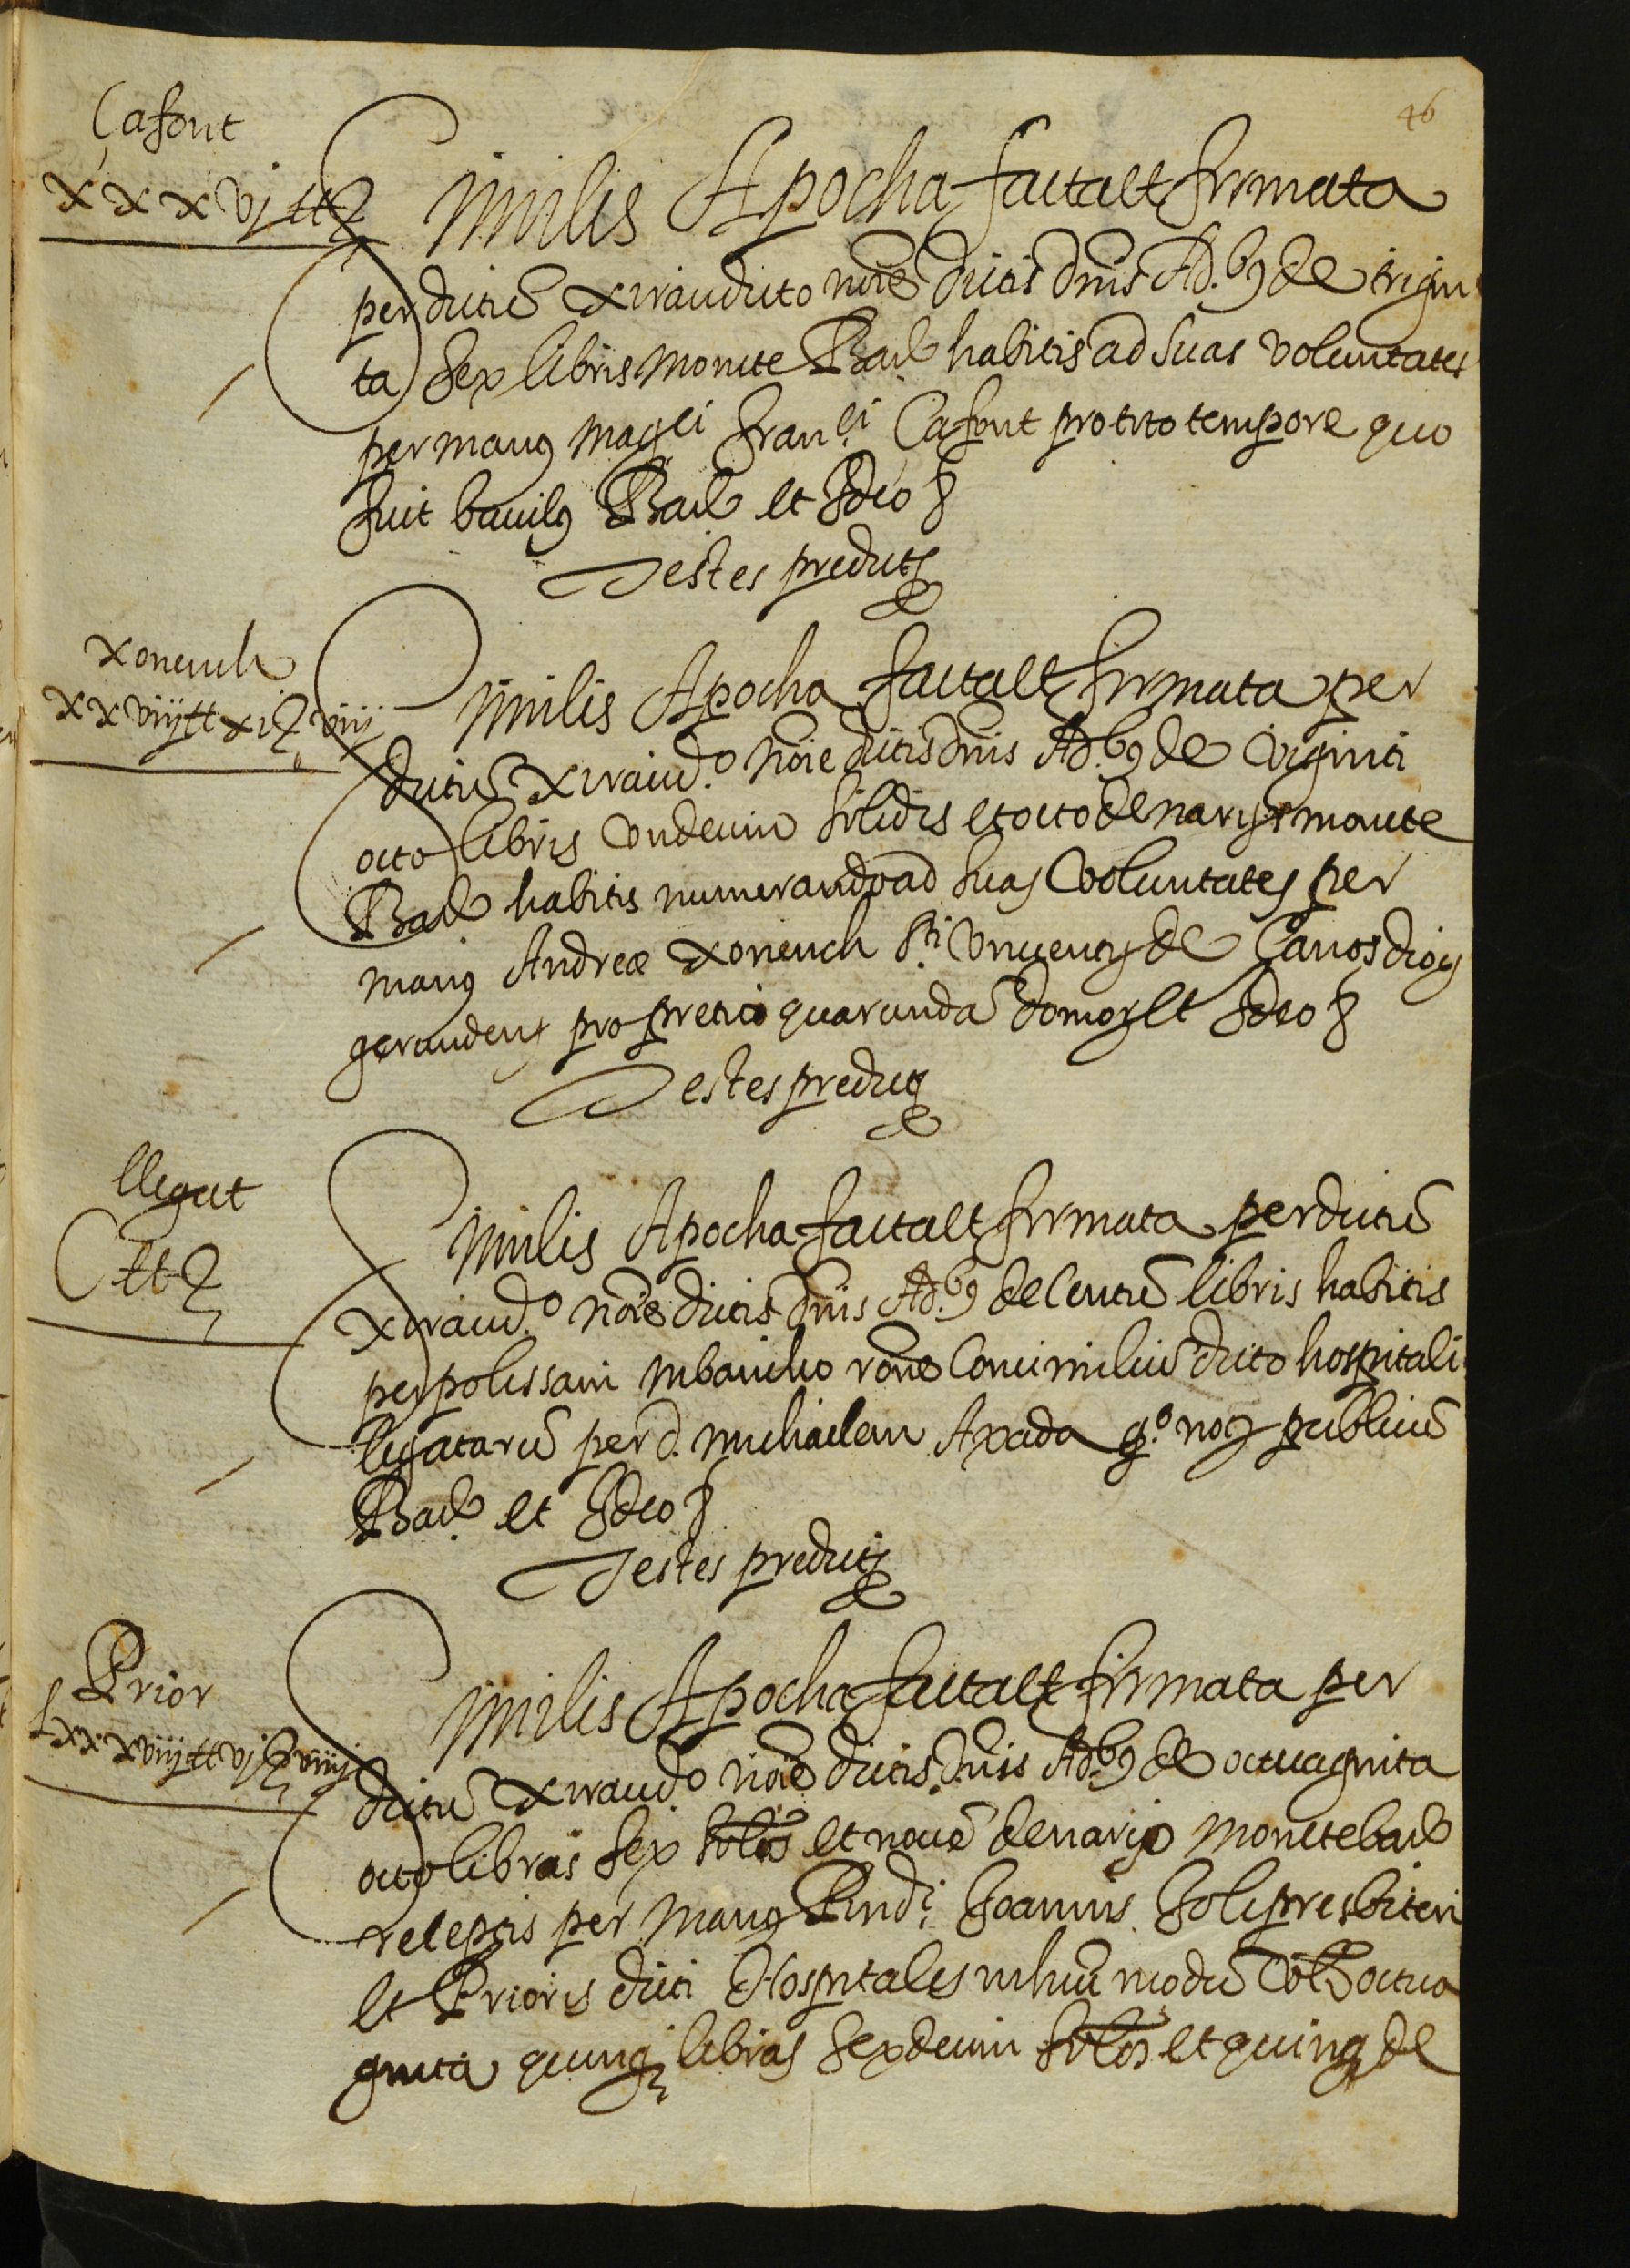 46
Çafont
xxxvj ll
Similis Apocha facta et firmata
per dictũ Xiraudicto nõie dictis dñis Ad.bꝯ de trigin
ta sex libris monete Barᵉ habitis ad suas voluntates
per manꝯ magᶜⁱ franᶜⁱ Çafont pro tᵗᵒ tempore quo
fuit baiulꝯ Barᵉ et Ideo §
Testes predicti
Xonench
xxviij ll xi ß viij
Similis Apocha facta et firmata per
dictũ Xiraud.º nõie dictis dñis Ad.bꝯ de viginti
octo libris undecim solidis et octo denarijs monete
Barᵉ habitis numerando ad suas voluntates per
manꝯ Andreæ Xonench Sᵗⁱ Vincentij de
gerunden pro pretio quarundã domoꝝ et Ideo §
Testes predicti
llegat
C ll
Similis Apocha facta et firmata per dictũ
Xiraud.º nõie dictis dñis Ad.bꝯ de Centũ libris habitis
per polissam in bancho rõne Consimiliũ dicto hospitali
legatarũ per d. michaelem Axada qº noᵗ publicũ
Barᵉ et Ideo §
Testes predicti
Prior
lxxxviij ll vj ß viiij
Similis Apocha facta et firmata per
dictũ Xiraud.º nõie dictis dñis Ad.bꝯ de octuaginta
octo libras sex solõs et novẽ denarijs monete barᵉ
receptis per manꝯ Rndⁱ Joannis Soli presbiteri
et Prioris dicti Hospitalis in hũc modũ octua
ginta quinqꝫ libras sexdecim solõs et quinqꝫ de